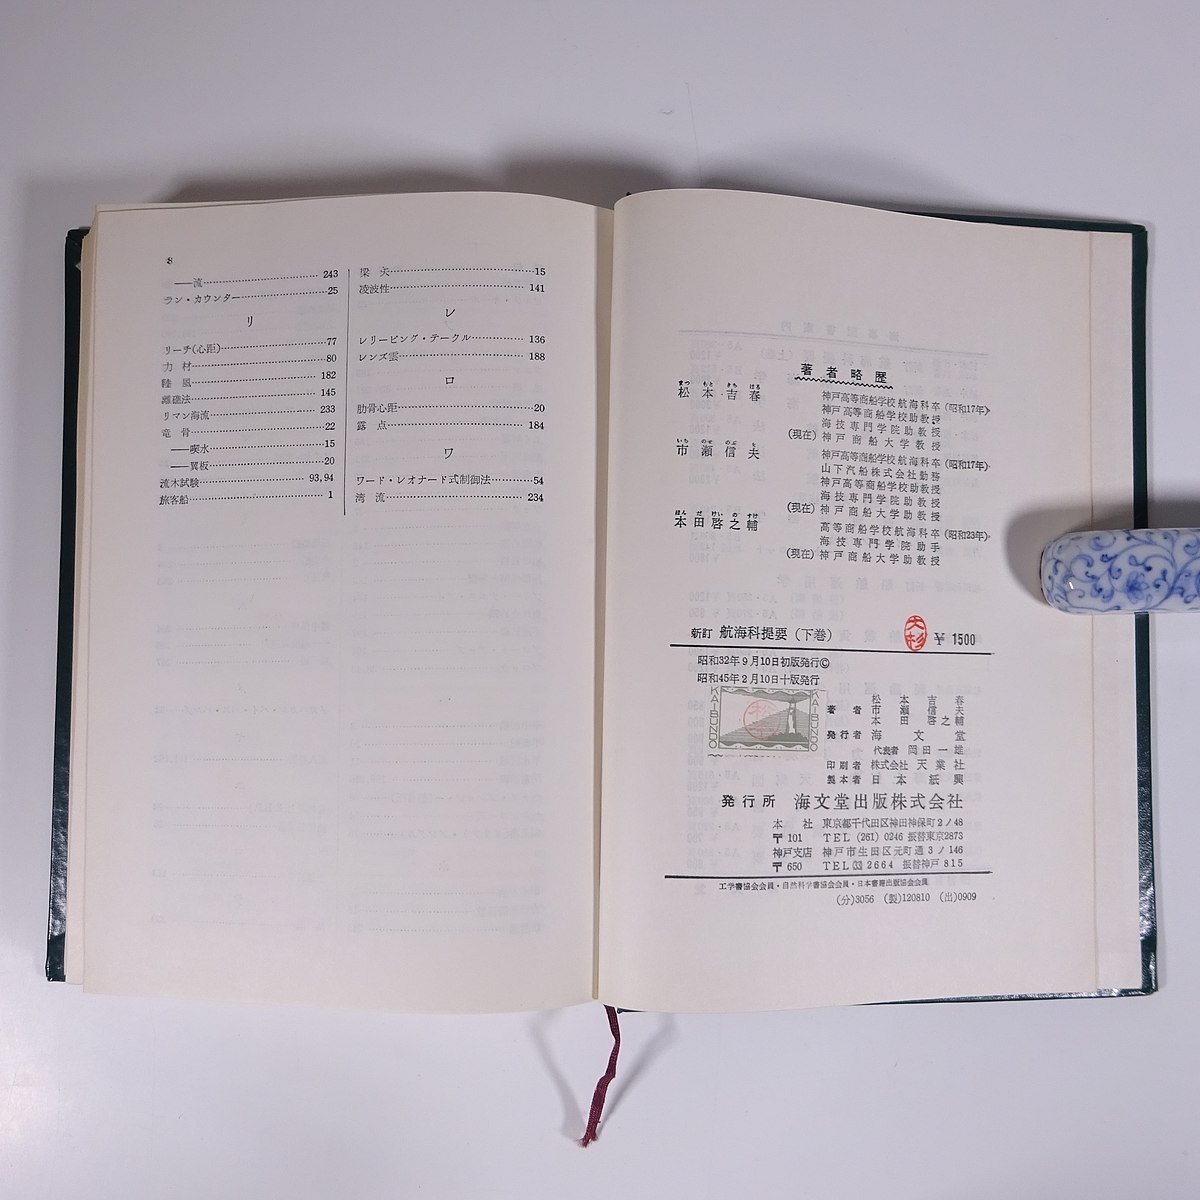 8
——流……… 243
ラン・カウンター……… 25
リ
リーチ(心距)……… 77
力 材……… 80
陸 風……… 182
離礁法……… 145
リマン海流……… 233
竜 骨……… 22
——喫水……… 15
——翼板……… 20
流木試験……… 93,94
旅客船……… 1
梁 矢……… 15
凌波性……… 141
レ
レリービング・テークル……… 136
レンズ雲……… 188
ロ
肋骨心距……… 20
露 点……… 184
ワ
ワード・レオナード式制御法……… 54
湾 流……… 234
著者略歴
まつ もと きち はる
松本吉春 神戸高等商船学校航海科卒(昭和17年)
神戸高等商船学校助教授
海技専門学院助教授
(現在) 神戸商船大学教授
いち のせ のぶ お
市瀬信夫 神戸高等商船学校航海科卒(昭和17年)
山下汽船株式会社勤務
神戸高等商船学校助教授
海技専門学院助教授
(現在) 神戸商船大学助教授
ほん だ けい の すけ
本田啓之輔 高等商船学校航海科卒(昭和23年)
海技専門学院助手
(現在) 神戸商船大学助教授
新訂 航海科提要(下巻) ¥1500
昭和32年9月10日初版発行©
昭和45年2月10日十版発行
KAIBUNDO
KAIBUNDO
著者 松本吉春
市瀬信夫
本田啓之輔
発行者 海文堂
代表者 岡田一雄
印刷者 株式会社 天業社
製本者 日本紙興
発行所 海文堂出版株式会社
本社 東京都千代田区神田神保町2ノ48
〒101 TEL (261) 0246 振替東京2873
神戸支店 神戸市生田区元町通3ノ146
〒650 TEL(33)2664 振替神戸815
工学書協会会員・自然科学書協会会員・日本書籍出版協会会員
(分)3056 (製)120810 (出)0909